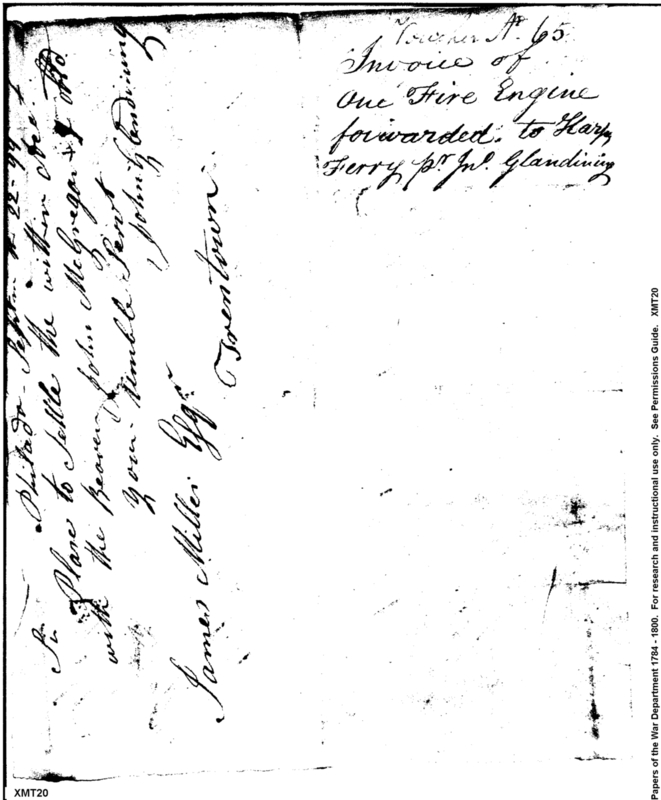 Voucher No. 65
Invoice of
One Fire Engine
forwarded. to Harp
Ferry pr Jno. Glandining
Philada. Septem 22-99
Sir
Plase to Settle the within
with the Bearer John McGregor &
your Humble Servt
John Glandining
James Miller Esqr
Trentown
Papers of the War Department 1784 - 1800. For research and instructional use only. See Permissions Guide. XMT20
XMT20